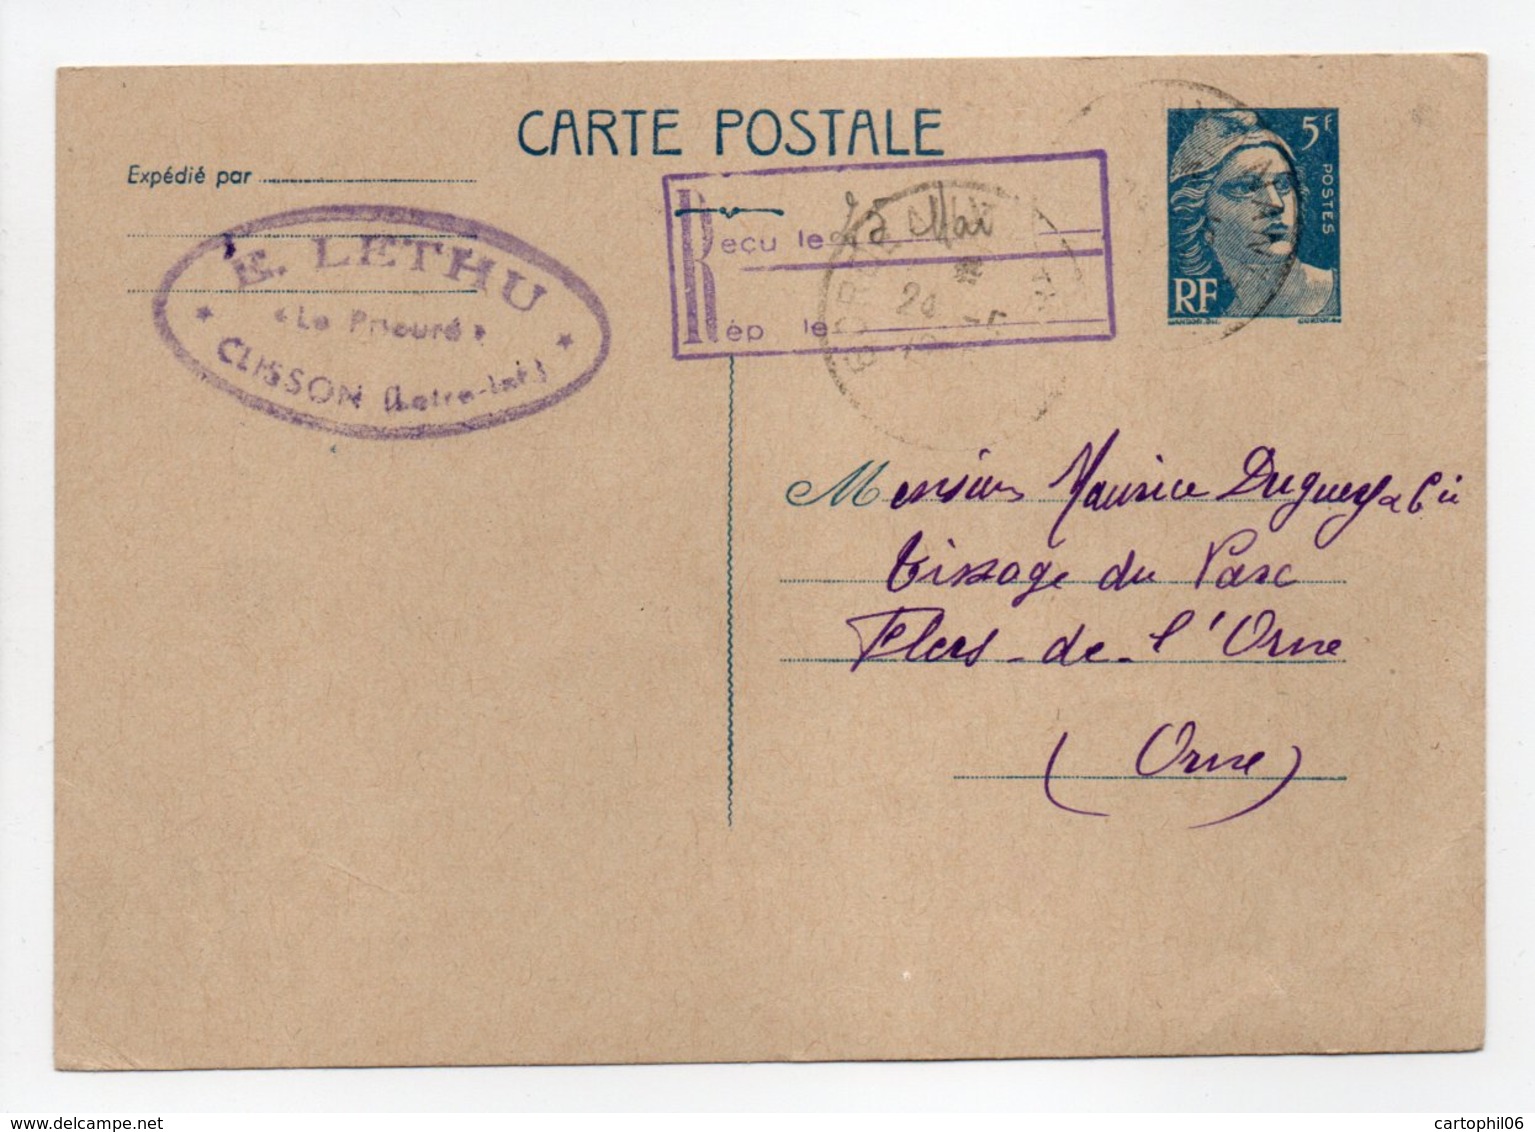 CARTE POSTALE
5F
POSTES
RF
Expédié par
E. LETHU
"Le Prieuré"
CLISSON (Loire-Inf.)
Reçu le 25 Mai
Rép le
24 -5
Monsieur Maurice Duguey & Cie
Tissage du Parc
Flers-de-l'Orne
(Orne)
www.delcampe.net
cartophil06